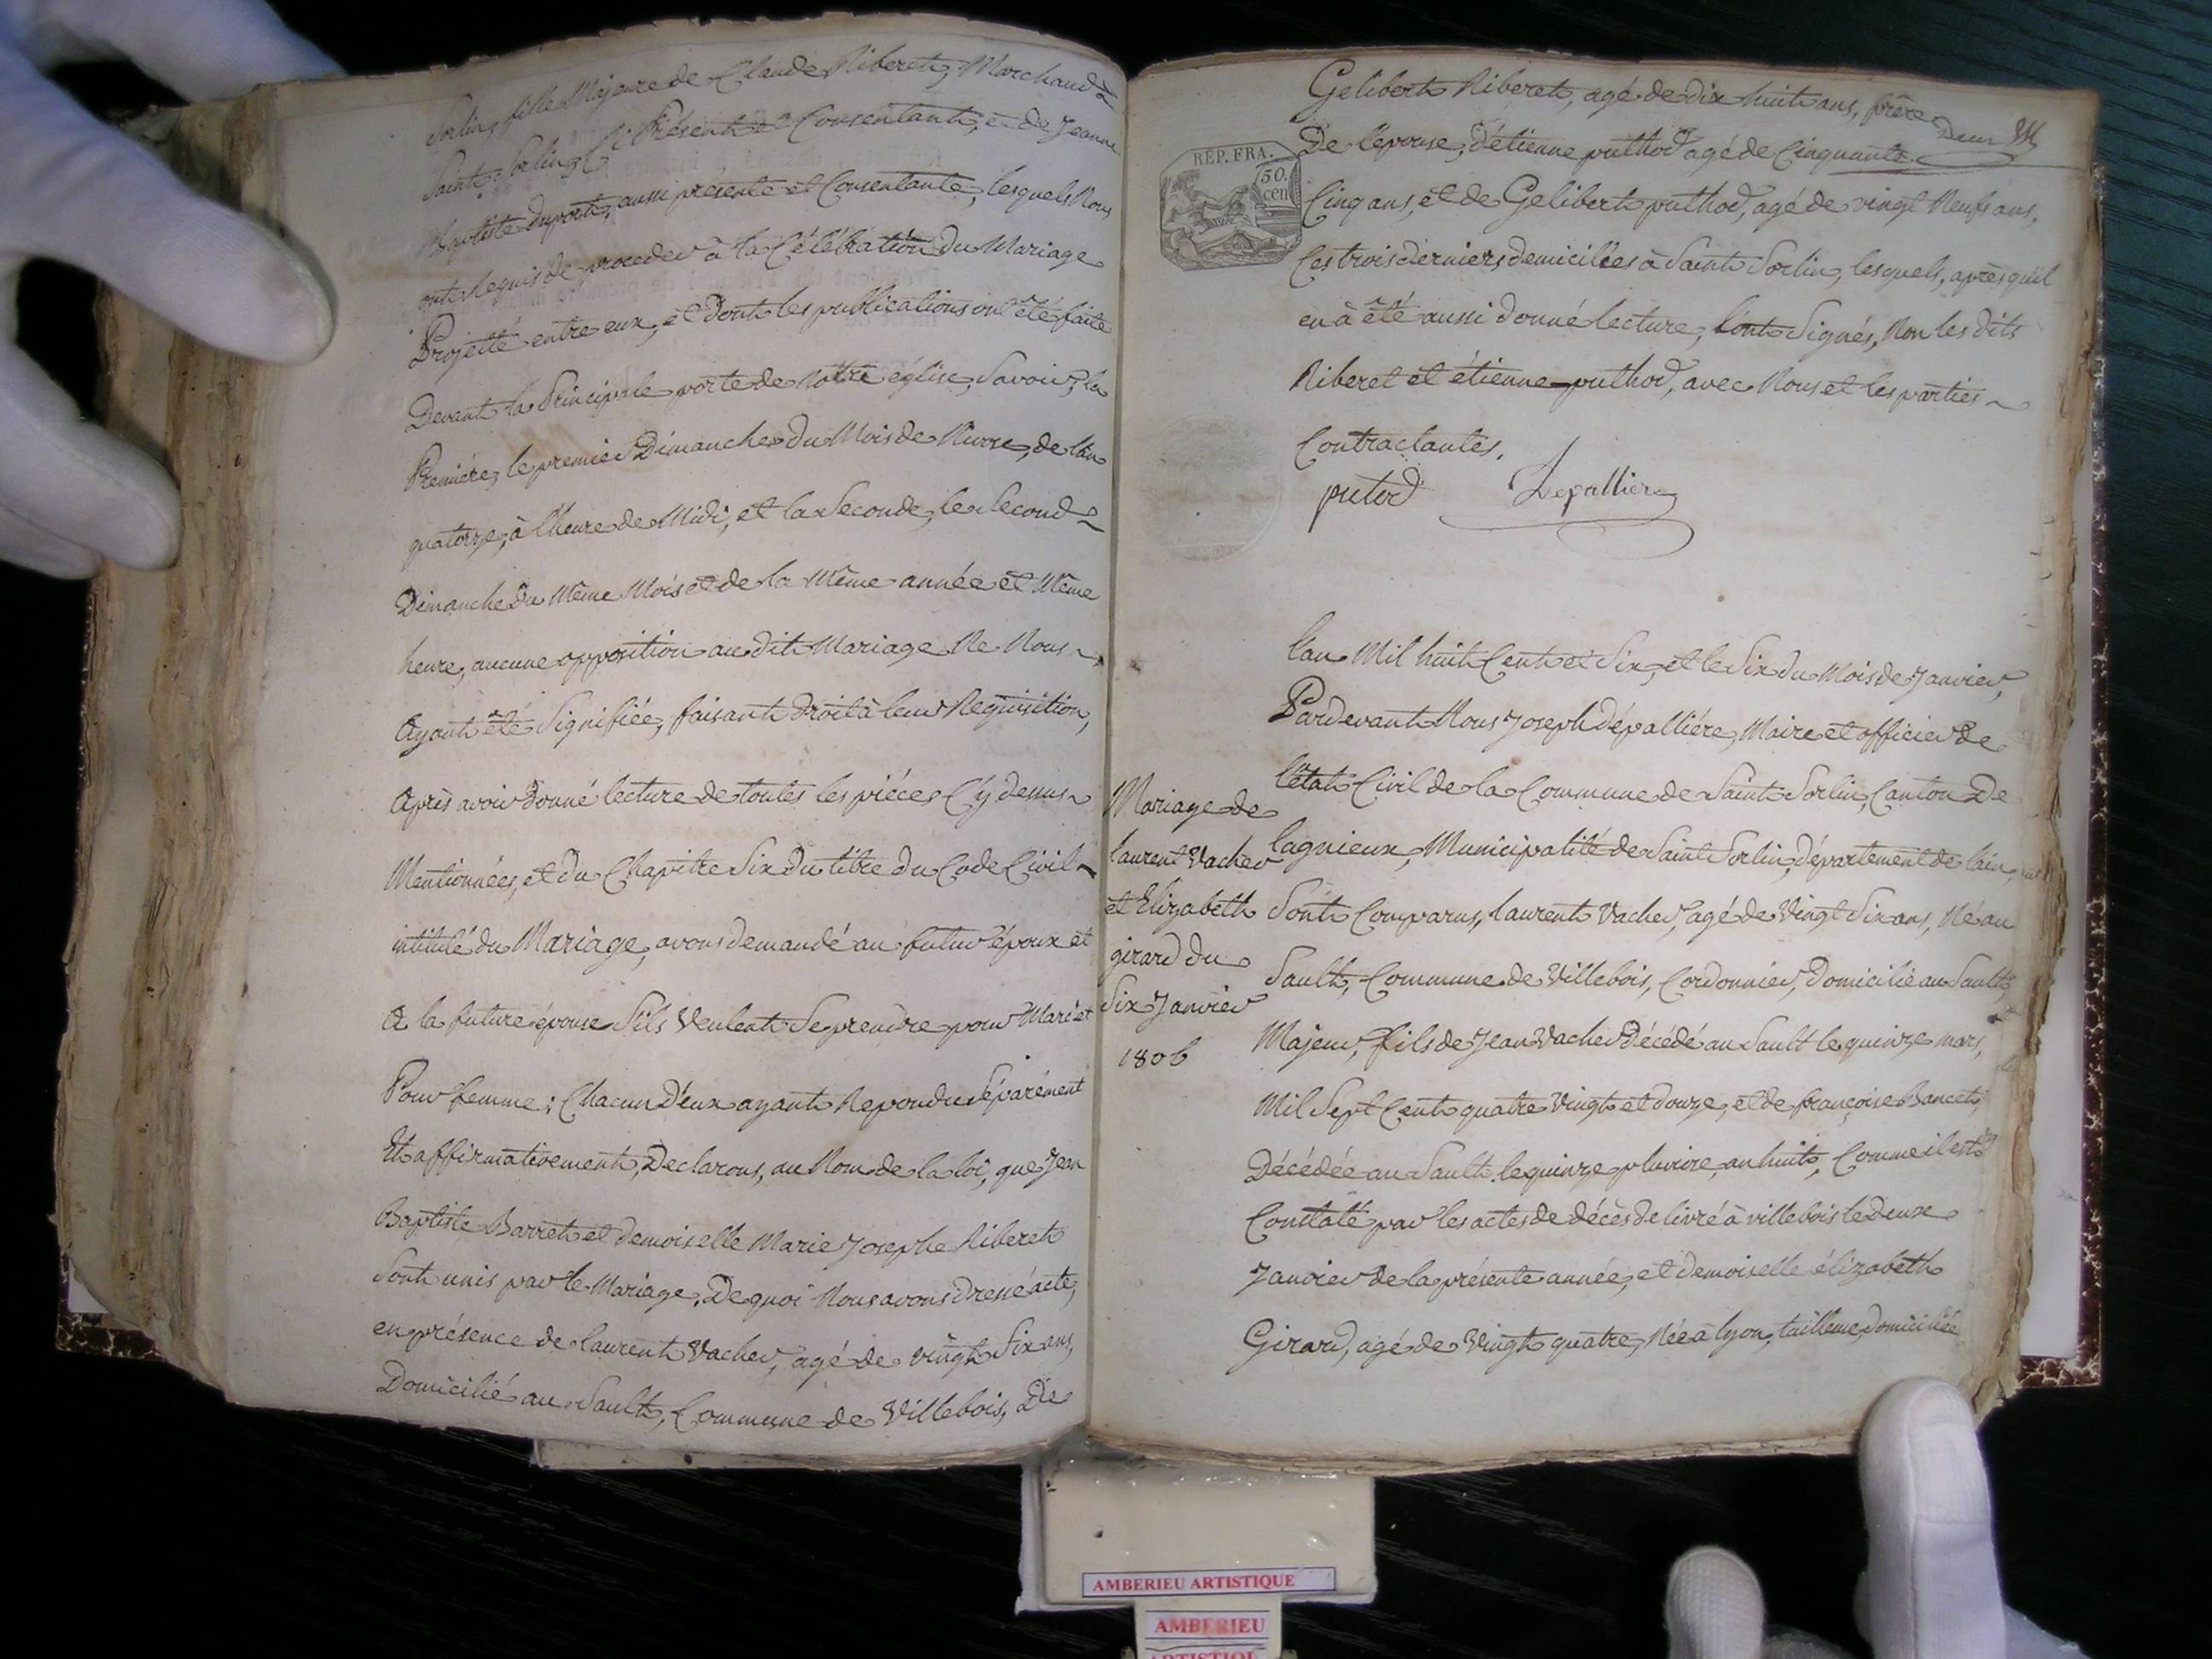 Sorlin, fille Majeure de Claude Riberet, Marchand à
Saint Sorlin, Ci Présent et Consentant, et de Jeanne
Baptiste duport, aussi présente et Consentante, lesquels Nous
ont Requis de proceder à la Célébration du Mariage
Projetté entre eux, et dont les publications ont été faite
Devant la Principale porte de Notre église, Savoir, la
Premiére, le premier Dimanche du Mois de Nivose, de l'an
quatorze, à l'heure de Midi, et la Seconde, le Second
Dimanche du Même Mois et de la Même année et Même
heure, aucune opposition au dit Mariage Ne Nous
Ayant été Signifiée, faisant droit à leur Requisition,
Après avoir donné lecture de toutes les piéces Cy dessus
Mentionnées, et du Chapitre Six du titre du Code Civil
intitulé du Mariage, avons demandé au futur époux et
A la future épouse S'ils Veulent Se prendre pour Mari et
Pour femme ; Chacun D'eux ayant Repondu Séparément
Et affirmativement, Declarons, au Nom de la loi, que Jean
Baptiste Barret et demoiselle Marie Josephe Riberet
Sont unis par le Mariage. De quoi Nous avons dressé acte,
en présence de laurent Vacher, agé de vingt Six ans,
Domicilié au Sault, Commune de Villebois, De
Gelibert Riberet, agé de dix huit ans, frère
Deux
De l'épouse, d'étienne puthod agé de Cinquante
REP. FRA.
50.
cen
Cinq ans, et de Gelibert puthod, agé de vingt Neufs ans,
Ces trois derniers domiciliées à Saint Sorlin, lesquels, après qu'il
en à été aussi donné lecture, l'ont Signés, Non les dits
Riberet et étienne puthod, avec Nous et les parties
Contractantes.
putod Depallière
l'an Mil huit Cent et Six, et le Six du Mois de Janvier,
Pardevant Nous Joseph dépalliére, Maire et officier de
l'état Civil de la Commune de Saint Sorlin, Canton De
lagnieux, Municipalité de Saint Sorlin, département de l'ain,
Sont Comparus, laurent Vacher, agé de Vingt Six ans, Né au
Sault, Commune de Villebois, Cordonnier, Domicilié au Sault,
Majeur, fils de Jean Vacher Décédé au Sault le quinze mars,
Mil Sept Cent quatre Vingt et douze, et de françoise Bancet,
Décédée au Sault le quinze pluviose, an huit, Comme il est
Constaté par les actes de décès delivré à villebois le deux
Janvier de la présente année, et demoiselle élizabeth
Girard, agé de Vingt quatre, Née à lyon, tailleuse, domiciliée
Mariage de
laurent Vacher
et Elizabeth
girard du
Six Janvier
1806
AMBERIEU ARTISTIQUE
AMBERIEU
ARTISTIQUE